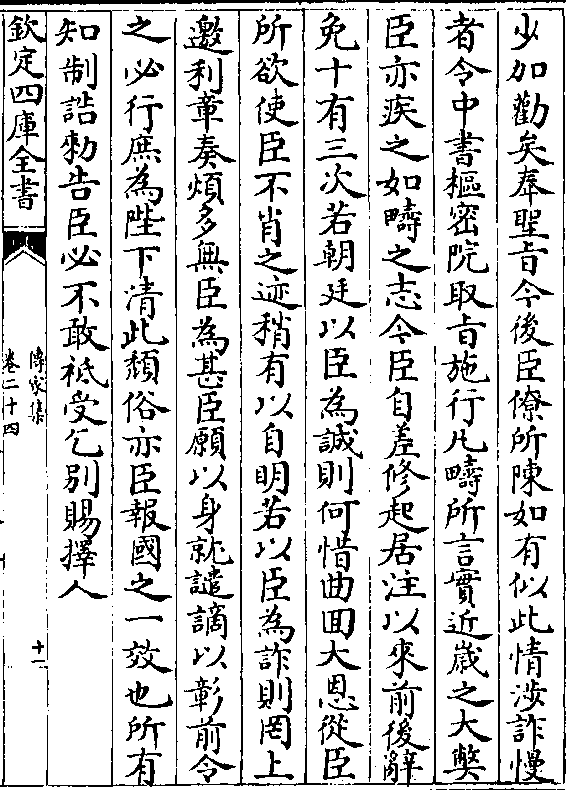 少加勸矣奉聖㫖今後臣僚所陳如有似此情涉詐慢
者令中書樞密院取㫖施行凡疇所言實近嵗之大弊
臣亦疾之如疇之志今臣自差修起居注以來前後辭
免十有三次若朝廷以臣為誠則何惜曲囬大恩從臣
所欲使臣不肖之迹稍有以自明若以臣為詐則罔上
邀利章奏煩多無臣為甚臣願以身就譴謫以彰前令
之必行庶為陛下清此頽俗亦臣報國之一效也所有
知制誥勅告臣必不敢祗受乞别賜擇人
欽定四庫全書
傳家集
卷二十四
十一